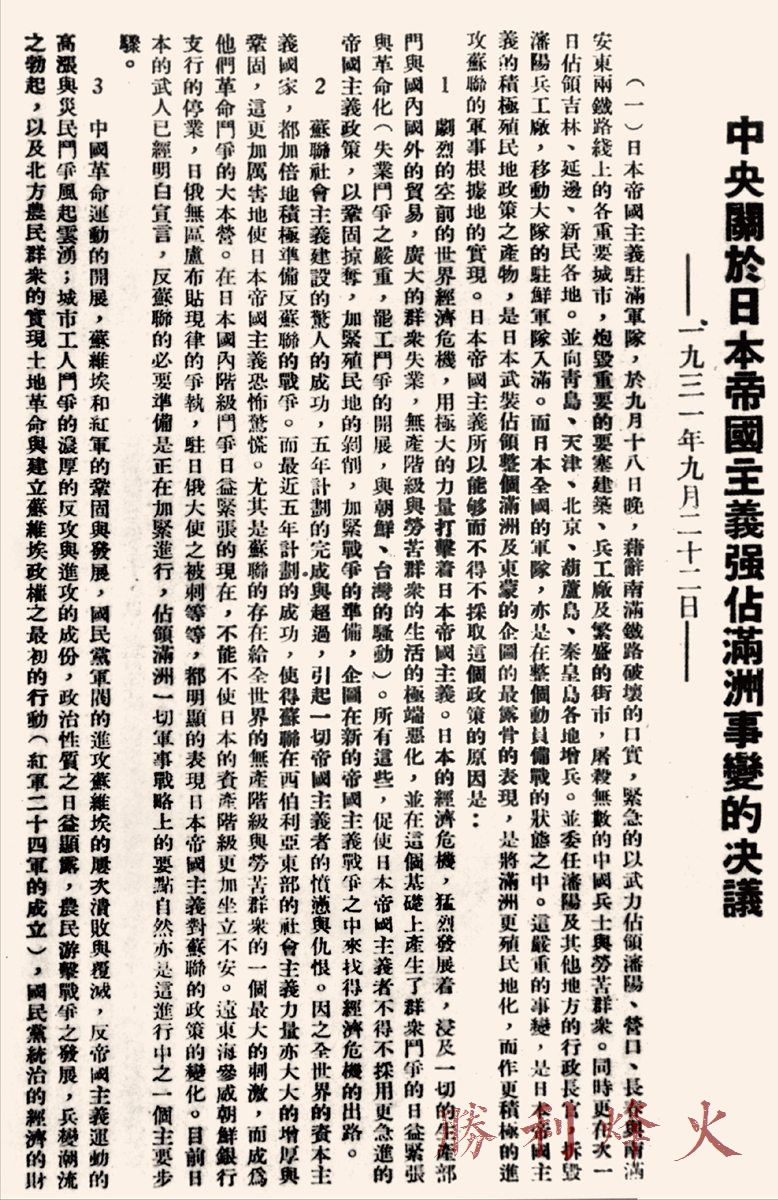 中央關於日本帝國主義强佔滿洲事變的決議
——一九三一年九月二十二日——
（一）日本帝國主義駐滿軍隊，於九月十八日晚，藉辭南滿鐵路破壞的口實，緊急的以武力佔領瀋陽、營口、長春與南滿
安東兩鐵路綫上的各重要城市，炮毀重要的要塞建築、兵工廠及繁盛的街市，屠殺無數的中國兵士與勞苦群衆。同時更在次一
日佔領吉林、延邊、新民各地。並向青島、天津、北京、葫蘆島、秦皇島各地增兵。並委任瀋陽及其他地方的行政長官，拆毀
瀋陽兵工廠，移動大隊的駐鮮軍隊入滿。而日本全國的軍隊，亦是在整個動員備戰的狀態之中。這嚴重的事變，是日本帝國主
義的積極殖民地政策之產物，是日本武裝佔領整個滿洲及東蒙的企圖的最露骨的表現，是將滿洲更殖民地化，而作更積極的進
攻蘇聯的軍事根據地的實現。日本帝國主義所以能够而不得不採取這個政策的原因是：
1　劇烈的空前的世界經濟危機，用極大的力量打擊着日本帝國主義。日本的經濟危機，猛烈發展着，浸及一切的生產部
門與國內國外的貿易，廣大的群衆失業，無產階級與勞苦群衆的生活的極端惡化，並在這個基礎上產生了群衆鬥爭的日益緊張
與革命化（失業鬥爭之嚴重，罷工鬥爭的開展，與朝鮮、台灣的騷動）。所有這些，促使日本帝國主義者不得不採用更急進的
帝國主義政策，以鞏固掠奪，加緊殖民地的剝削，加緊戰爭的準備，企圖在新的帝國主義戰爭之中來找得經濟危機的出路。
2　蘇聯社會主義建設的驚人的成功，五年計劃的完成與超過，引起一切帝國主義者的憤懣與仇恨。因之全世界的資本主
義國家，都加倍地積極準備反蘇聯的戰爭。而最近五年計劃的成功，使得蘇聯在西伯利亞東部的社會主義力量亦大大的增厚與
鞏固，這更加厲害地使日本帝國主義恐怖驚慌。尤其是蘇聯的存在給全世界的無產階級與勞苦群衆的一個最大的刺激，而成爲
他們革命鬥爭的大本營。在日本國內階級鬥爭日益緊張的現在，不能不使日本的資產階級更加坐立不安。遠東海參威朝鮮銀行
支行的停業，日俄漁區盧布貼現律的爭執，駐日俄大使之被刺等等，都明顯的表現日本帝國主義對蘇聯的政策的變化。目前日
本的武人已經明白宣言，反蘇聯的必要準備是正在加緊進行，佔領滿洲一切軍事戰略上的要點自然亦是這進行中之一個主要步
驟。
3　中國革命運動的開展，蘇維埃和紅軍的鞏固與發展，國民黨軍閥的進攻蘇維埃的屢次潰敗與覆滅，反帝國主義運動的
高漲與災民鬥爭風起雲湧；城市工人鬥爭的濃厚的反攻與進攻的成份，政治性質之日益顯露，農民游擊戰爭之發展，兵變潮流
之勃起，以及北方農民群衆的實現土地革命與建立蘇維埃政權之最初的行動（紅軍二十四軍的成立），國民黨統治的經濟的財
勝利烽火